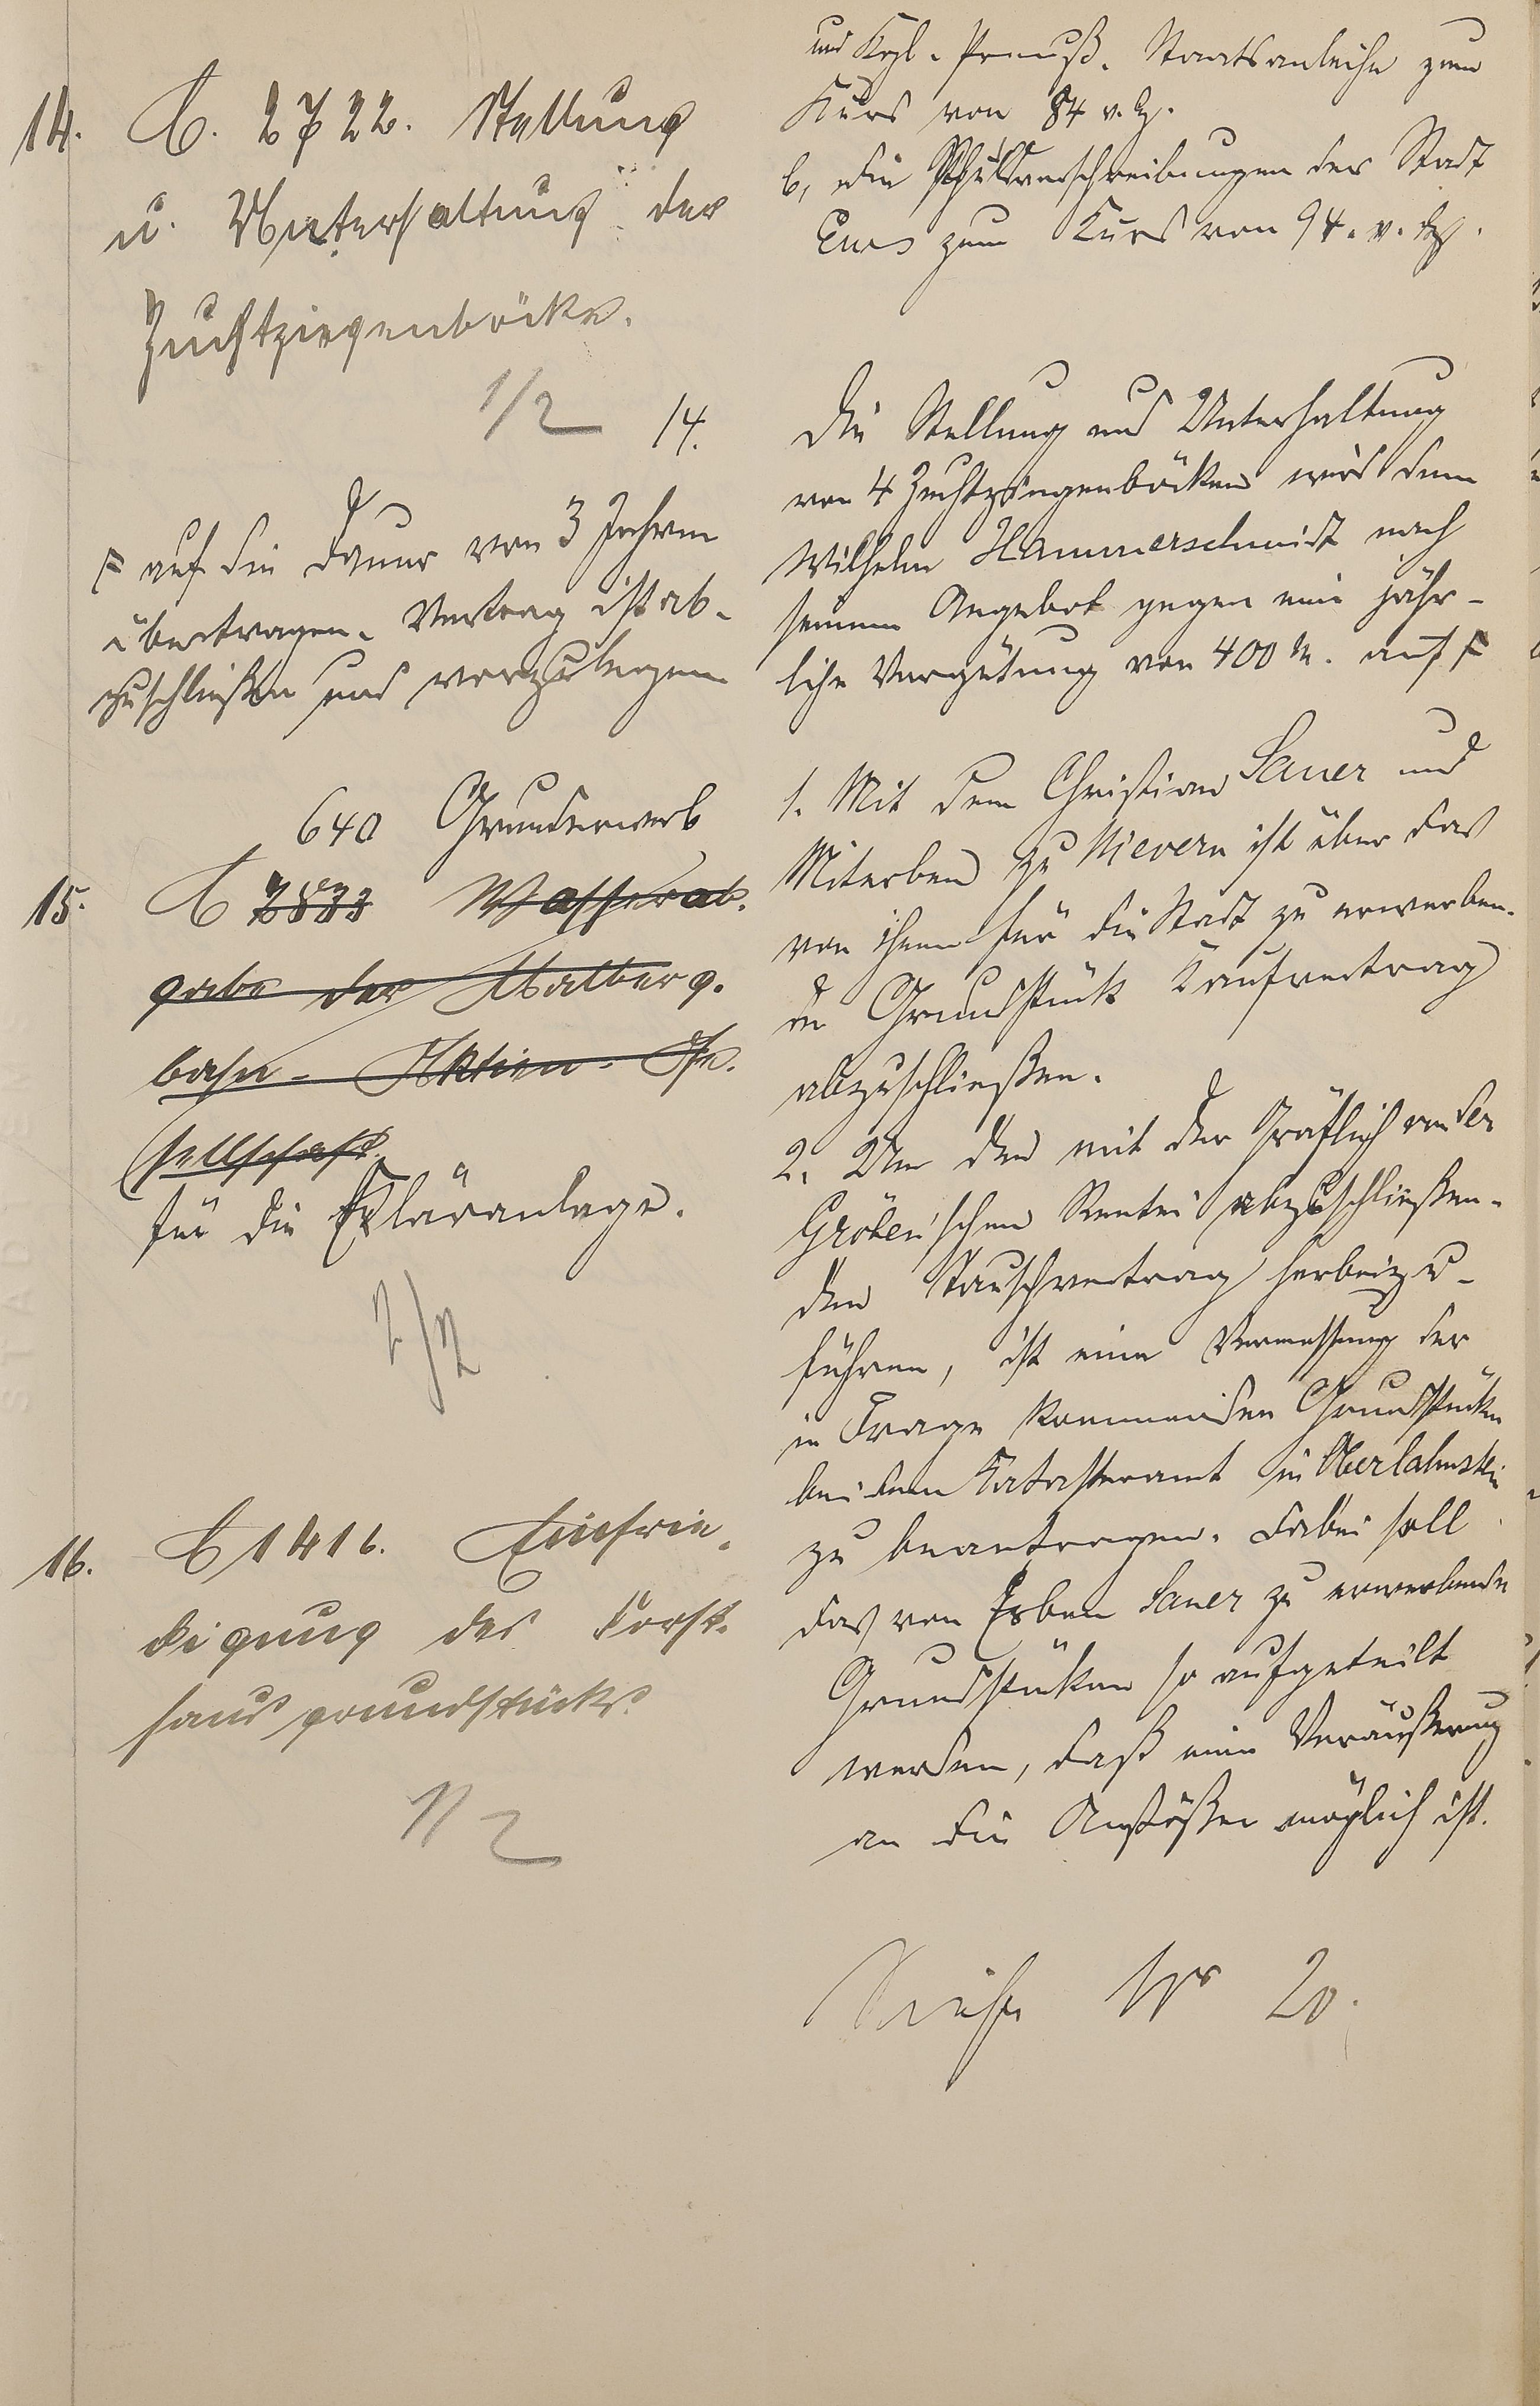 und Kgl. Preuß. Staatsanleihe zum
Kurs von 84 v. H.
b, die Schuldverschreibungen der Stadt
Ems zum Kurs von 94. v. H.
14. C. 2722. Stellung
u. Unterhaltung der
Zuchtziegenböcke.
1/2
14. Die Stellung und Unterhaltung
von 4 Zuchtziegenböcken wird dem
Wilhelm Hammerschmidt nach
seinem Angebot gegen eine jähr-
liche Vergütung von 400 M. auf F
F auf die Dauer von 3 Jahren
übertragen. Vertrag ist ab-
zuschließen und vorzulegen
640 Grunderwerb
15. C 2833 Wasserab-
gabe der Malberg-
bahn-Aktien-Ge-
sellschaft.
für die Kläranlage.
2/2
1. Mit dem Christian Sauer und
Miterben zu Nievern ist über das
von ihnen für die Stadt zu erwerben-
de Grundstück Kaufvertrag
abzuschließen.
2. Um den mit der Gräflich von der
Gröben'schen Rentei abzuschließen-
den Tauschvertrag herbeizu-
führen, ist eine Vermessung der
in Frage kommenden Grundstücke
bei dem Katasteramt in Oberlahnstein
zu beantragen. Dabei soll
das von Erben Sauer zu erwerbende
Grundstücken so aufgeteilt
werden, daß eine Veräußerung
an die Anstößer möglich ist.
16. C 1416. Einfrie-
digung des Forst-
hausgrundstücks.
1/2
Siehe Nr 20.